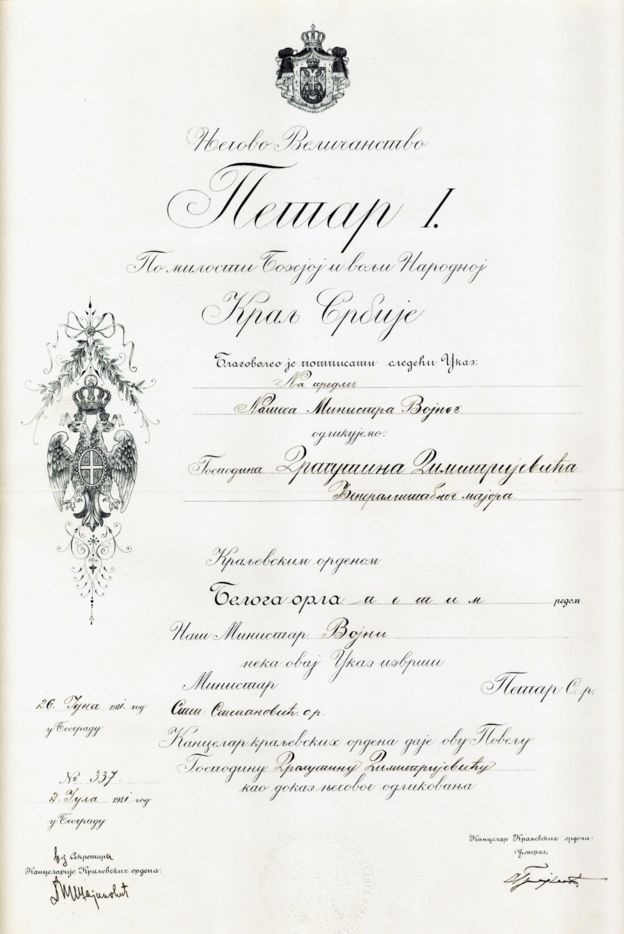 Његово Величанство
Петар I.
По милости Божјој и вољи Народној
Краљ Србије
Благоволео је потписати следећи Указ:
На предлог
Нашега Министра Војног
одликујемо:
Господина Драгутина Димитријевића
Ђенералштабног мајора
Краљевским орденом
Белога орла петим редом
Наш Министар Војни
нека овај Указ изврши
Министар Петар С. р.
26. Јуна 191 год
Степановић с.р.
у Београду
Канцелар краљевских ордена даје ову Повељу
Господину Драгутину Димитријевићу
№ 337
као доказ његовог одликовања
2. Јула 191 год
у Београду
Канцелар Краљевских ордена:
Ђенерал,
Секретара
Канцеларије Краљевских ордена: